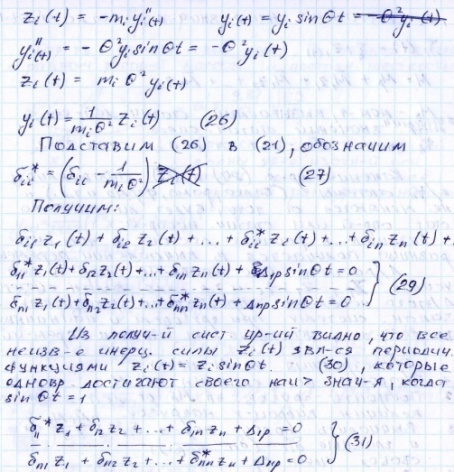 zᵢ(t) = -mᵢyᵢ''(t)   yᵢ(t) = yᵢ sin θt = -θ²yᵢ(t)
yᵢ'' = -θ²yᵢ sin θt = -θ²yᵢ(t)
zᵢ(t) = mᵢ θ² yᵢ(t)
yᵢ(t) = 1/(mᵢθ²) zᵢ(t)   (26)
Подставим (26) в (21), обозначим
δᵢᵢ* = (δᵢᵢ - 1/(mᵢθ²)) zᵢ(t)   (27)
Получим:
δᵢ₁ z₁(t) + δᵢ₂ z₂(t) + ... + δᵢᵢ* zᵢ(t) + ... + δᵢₙ zₙ(t) +
δ₁₁* z₁(t) + δ₁₂ z₂(t) + ... + δ₁ₙ zₙ(t) + Δ₁ₚ sin θt = 0
δₙ₁ z₁(t) + δₙ₂ z₂(t) + ... + δₙₙ* zₙ(t) + Δₙₚ sin θt = 0   } (29)
Из получ-й сист. ур-ий видно, что все
неизв-е инерц. силы zᵢ(t) явл-ся периодич.
функциями zᵢ(t) = zᵢ sin θt. (30), которые
одновр. достигают своего наи> знач-я, когда
sin θt = 1
δ₁₁* z₁ + δ₁₂ z₂ + ... + δ₁ₙ zₙ + Δ₁ₚ = 0
δₙ₁ z₁ + δₙ₂ z₂ + ... + δₙₙ* zₙ + Δₙₚ = 0   } (31)